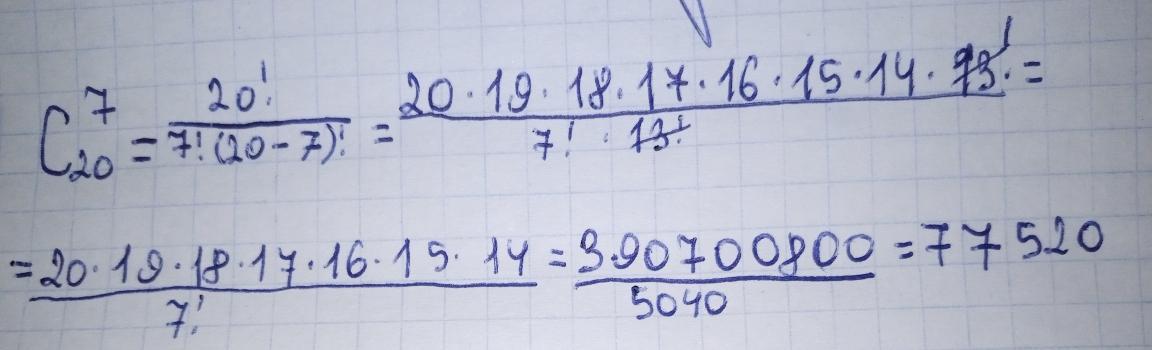 C₂₀⁷ = 20! / 7!(20-7)! = 20·19·18·17·16·15·14·13! / 7!·13! =
= 20·19·18·17·16·15·14 / 7! = 390700800 / 5040 = 77520